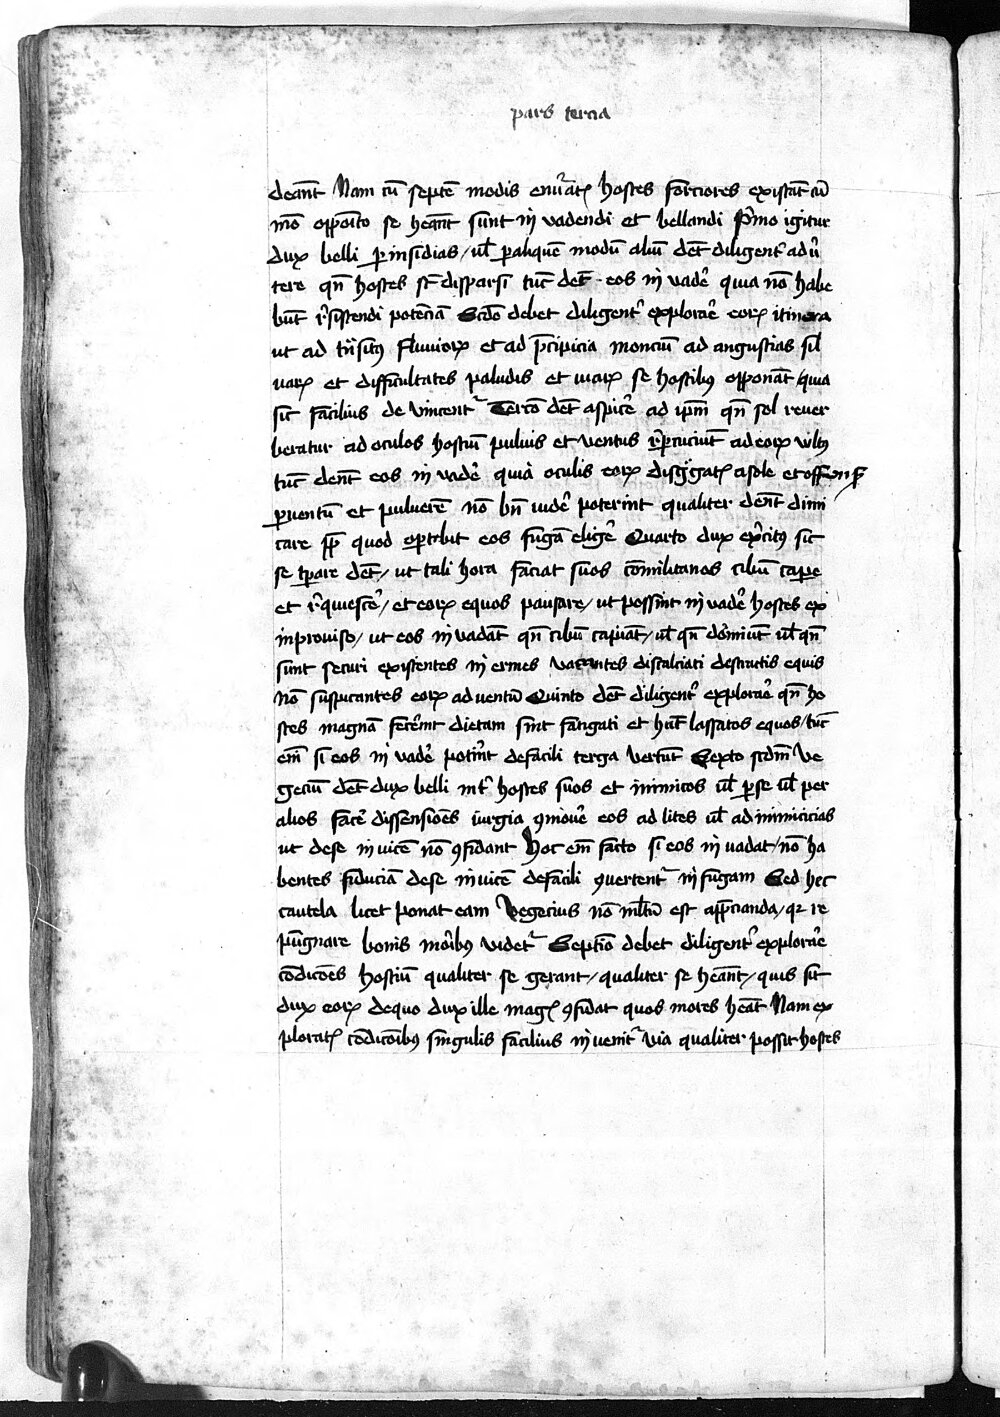 pars tercia
deant Nam cū septē modis enūat hostes forciores existāt cū
mō opp̄oito se heant sunt inuadendi et bellandi p̄mo igitur
dux belli ꝑ insidias / ul̄ ꝑ aliquē modū aliū det̄ diligent̄ adū
tere qn̄ hostes st̄ disparsi tūc det̄ eos inuade᷑ quia nō habe
būt r̄sistendi potēciā Scdō debet diligent᷑ explorar̄e eoꝝ itinera
ut ad trn̄situs fluuioꝝ et ad p̄cipicia monciū ad angustias sil
uaꝝ et difficultates paludis et uiaꝝ se hostibꝰ opponāt / quia
sic facilius deuincent᷑ Tercō det̄ aspice᷑ ad ip̄m qn̄ sol reuer
beratur ad oculos hostiū puluis et uentus r̄ꝑcuciūt ad eoꝝ uultꝰ
tūc dent̄ eos inuade᷑ quia oculis eoꝝ disg̅gatꝭ a sole et offensꝭ
ꝑ uentū et puluerē nō bn̄ uide᷑ poterint qualiter dent̄ dimi
care ꝓp̄ quod oportebit eos fugā elige᷑ Quarto dux exr̄citꝰ sic
se tꝑare det̄ / ut tali hora faciat suos cōmilitanos cibū caꝑe
et r̄quiesce᷑ / et eoꝝ equos pausare / ut possint inuade᷑ hostes ex
inprouiso / ut eos inuadāt qn̄ cibū capiāt / ul̄ qn̄ dōmiūt ul̄ qn̄
sunt securi existentes inermes vacantes discalciati destructis equis
nō suspicantes eoꝝ aduentū Quinto det̄ diligent᷑ explorar̄e qn̄ ho
stes magnā fecer̄int dietam sint fatigati et hn̄t lassatos equos / tūc
em̄ si eos inuade᷑ potint̄ de facili terga vertūt Sexto scdm̄ Ve
geciū det̄ dux belli int᷑ hostes suos et inimicos ul̄ ꝑ se ul̄ per
alios face᷑ dissensiōes iurgia ꝯmoue᷑ eos ad lites ul̄ ad inimicicias
ut de se inuicē nō ꝯfidant hoc em̄ facto si eos inuadat / nō ha
bentes fiduciā de se inuicē de facili ꝯuertent᷑ in fugam Sed hec
cautela licet ponat eam Vegecius nō ml̄tū est app̄cianda / qꝛ re
pugnare bonis moribꝰ videt᷑ Septīo debet diligent᷑ explorar̄e
cōdicōes hostiū qualiter se gerant / qualiter se heant̄ / quis sit
dux eoꝝ de quo dux ille magꝭ ꝯfidat quos mores heat̄ Nam ex
ploratꝭ cōdicōibꝰ singulis facilius inuenit᷑ via qualiter possit hostes